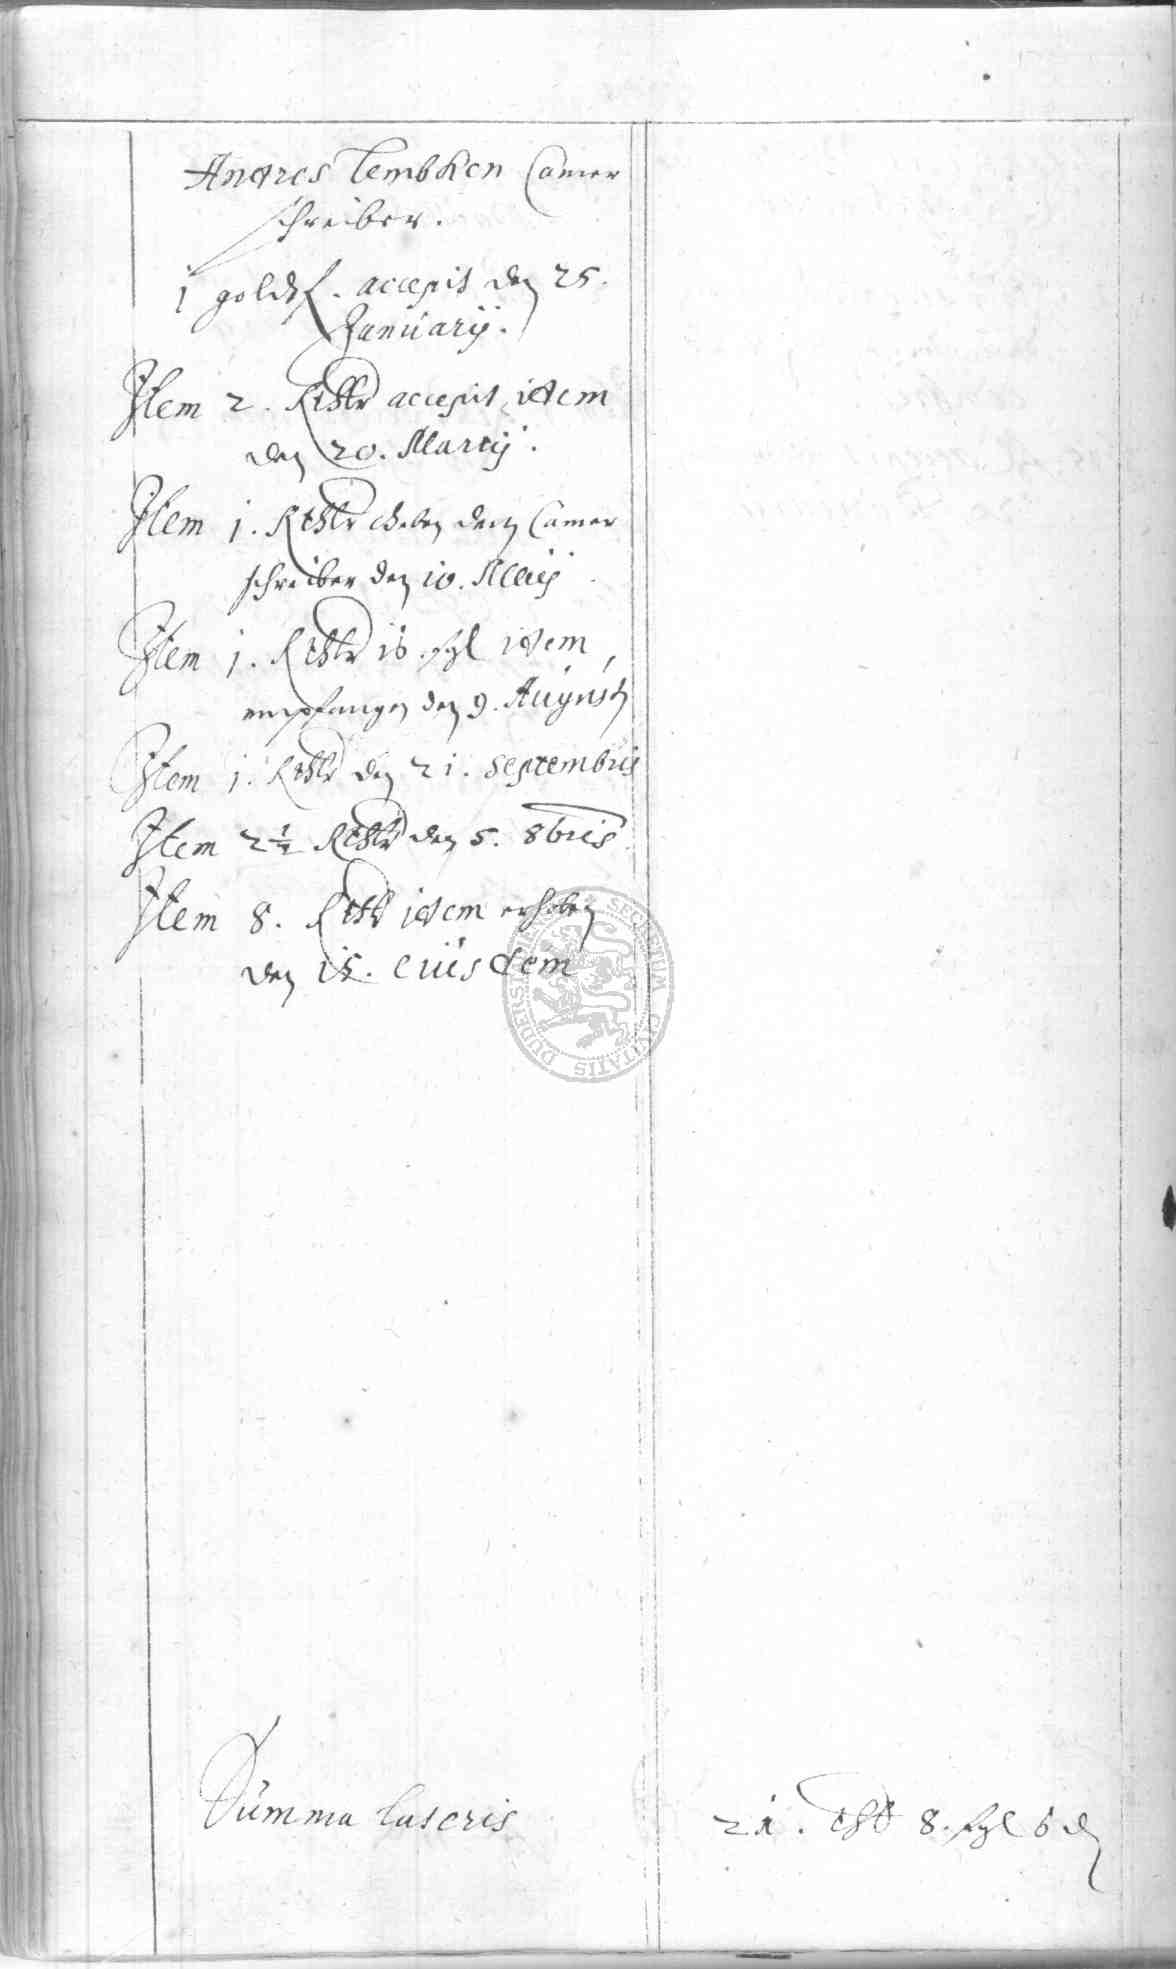 Andres Lembken Camer
schreiber.
1 goldfl. accepit den 25.
Januarij.
Item 2. Rthlr accepit idem
den 20. Martij.
Item 1. Rthlr dem Camer
schreiber den 10. Maij
Item 1. Rthlr 18 sgl idem
empfangen den 9. Augusti
Item 1. Rthlr den 21. Septembris
Item 2½ Rthlr den 5. 8bris
Item 8. Rthlr idem erhoben
den 15. eiusdem
SECRETUM CIVITATIS DUDERST
Summa lateris 21. thl 8. sgl 6 d